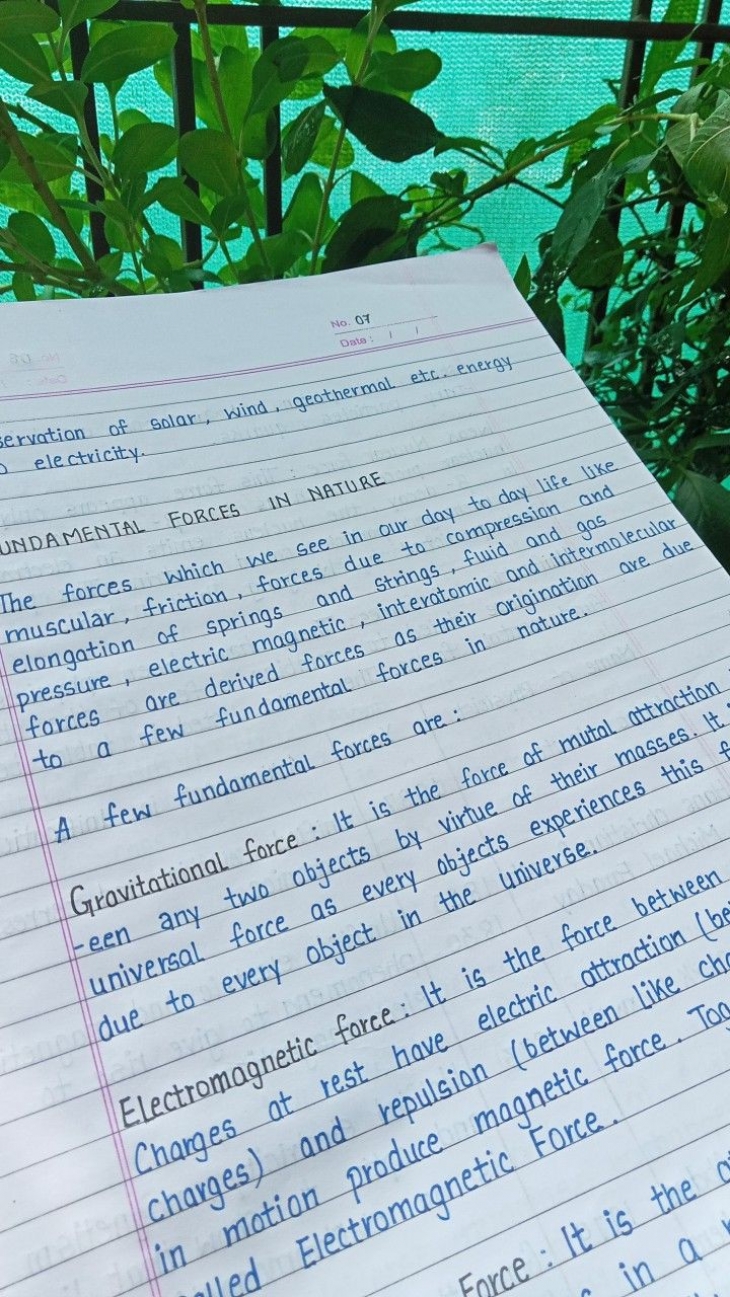 No. 07
Date: / /
servation of solar, wind, geothermal etc. energy
o electricity.
UNDAMENTAL FORCES IN NATURE
The forces which we see in our day to day life like
muscular, friction, forces due to compression and
elongation of springs and strings, fluid and gas
pressure, electric magnetic, interatomic and intermolecular
forces are derived forces as their origination are due
to a few fundamental forces in nature.
A few fundamental forces are:
Gravitational force: It is the force of mutal attraction
-een any two objects by virtue of their masses. It
universal force as every objects experiences this f
due to every object in the universe.
Electromagnetic force: It is the force between
Charges at rest have electric attraction (be
charges) and repulsion (between like cha
in motion produce magnetic force. Tog
alled Electromagnetic Force.
Force: It is the
in a